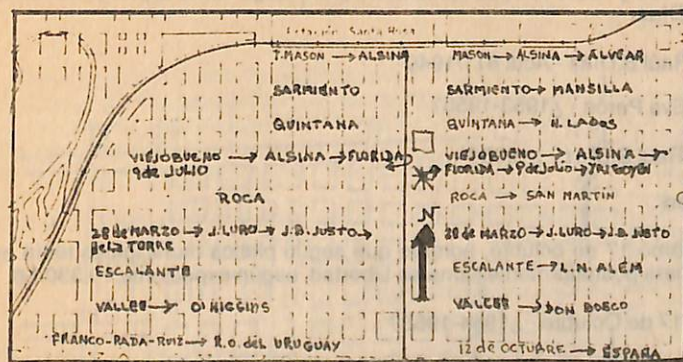 Estación Santa Rosa
T. MASON → ALSINA
SARMIENTO
QUINTANA
VIEJOBUENO → ALSINA → FLORIDA
9 de JULIO
ROCA
28 de MARZO → J. LURO → J. B. JUSTO →
de la TORRE
ESCALANTE
VALLEE → O'HIGGINS
FRANCO-RADA-RUIZ → R.O. del URUGUAY
MASON → ALSINA → ALVEAR
SARMIENTO → MANSILLA
QUINTANA → N. LAGOS
VIEJOBUENO → ALSINA →
FLORIDA → 9 de JULIO → YRIGOYEN
ROCA → SAN MARTÍN
N
28 de MARZO → J. LURO → J.B. JUSTO
ESCALANTE → L. N. ALEM
VALLEE → DON BOSCO
12 de OCTUBRE → ESPAÑA